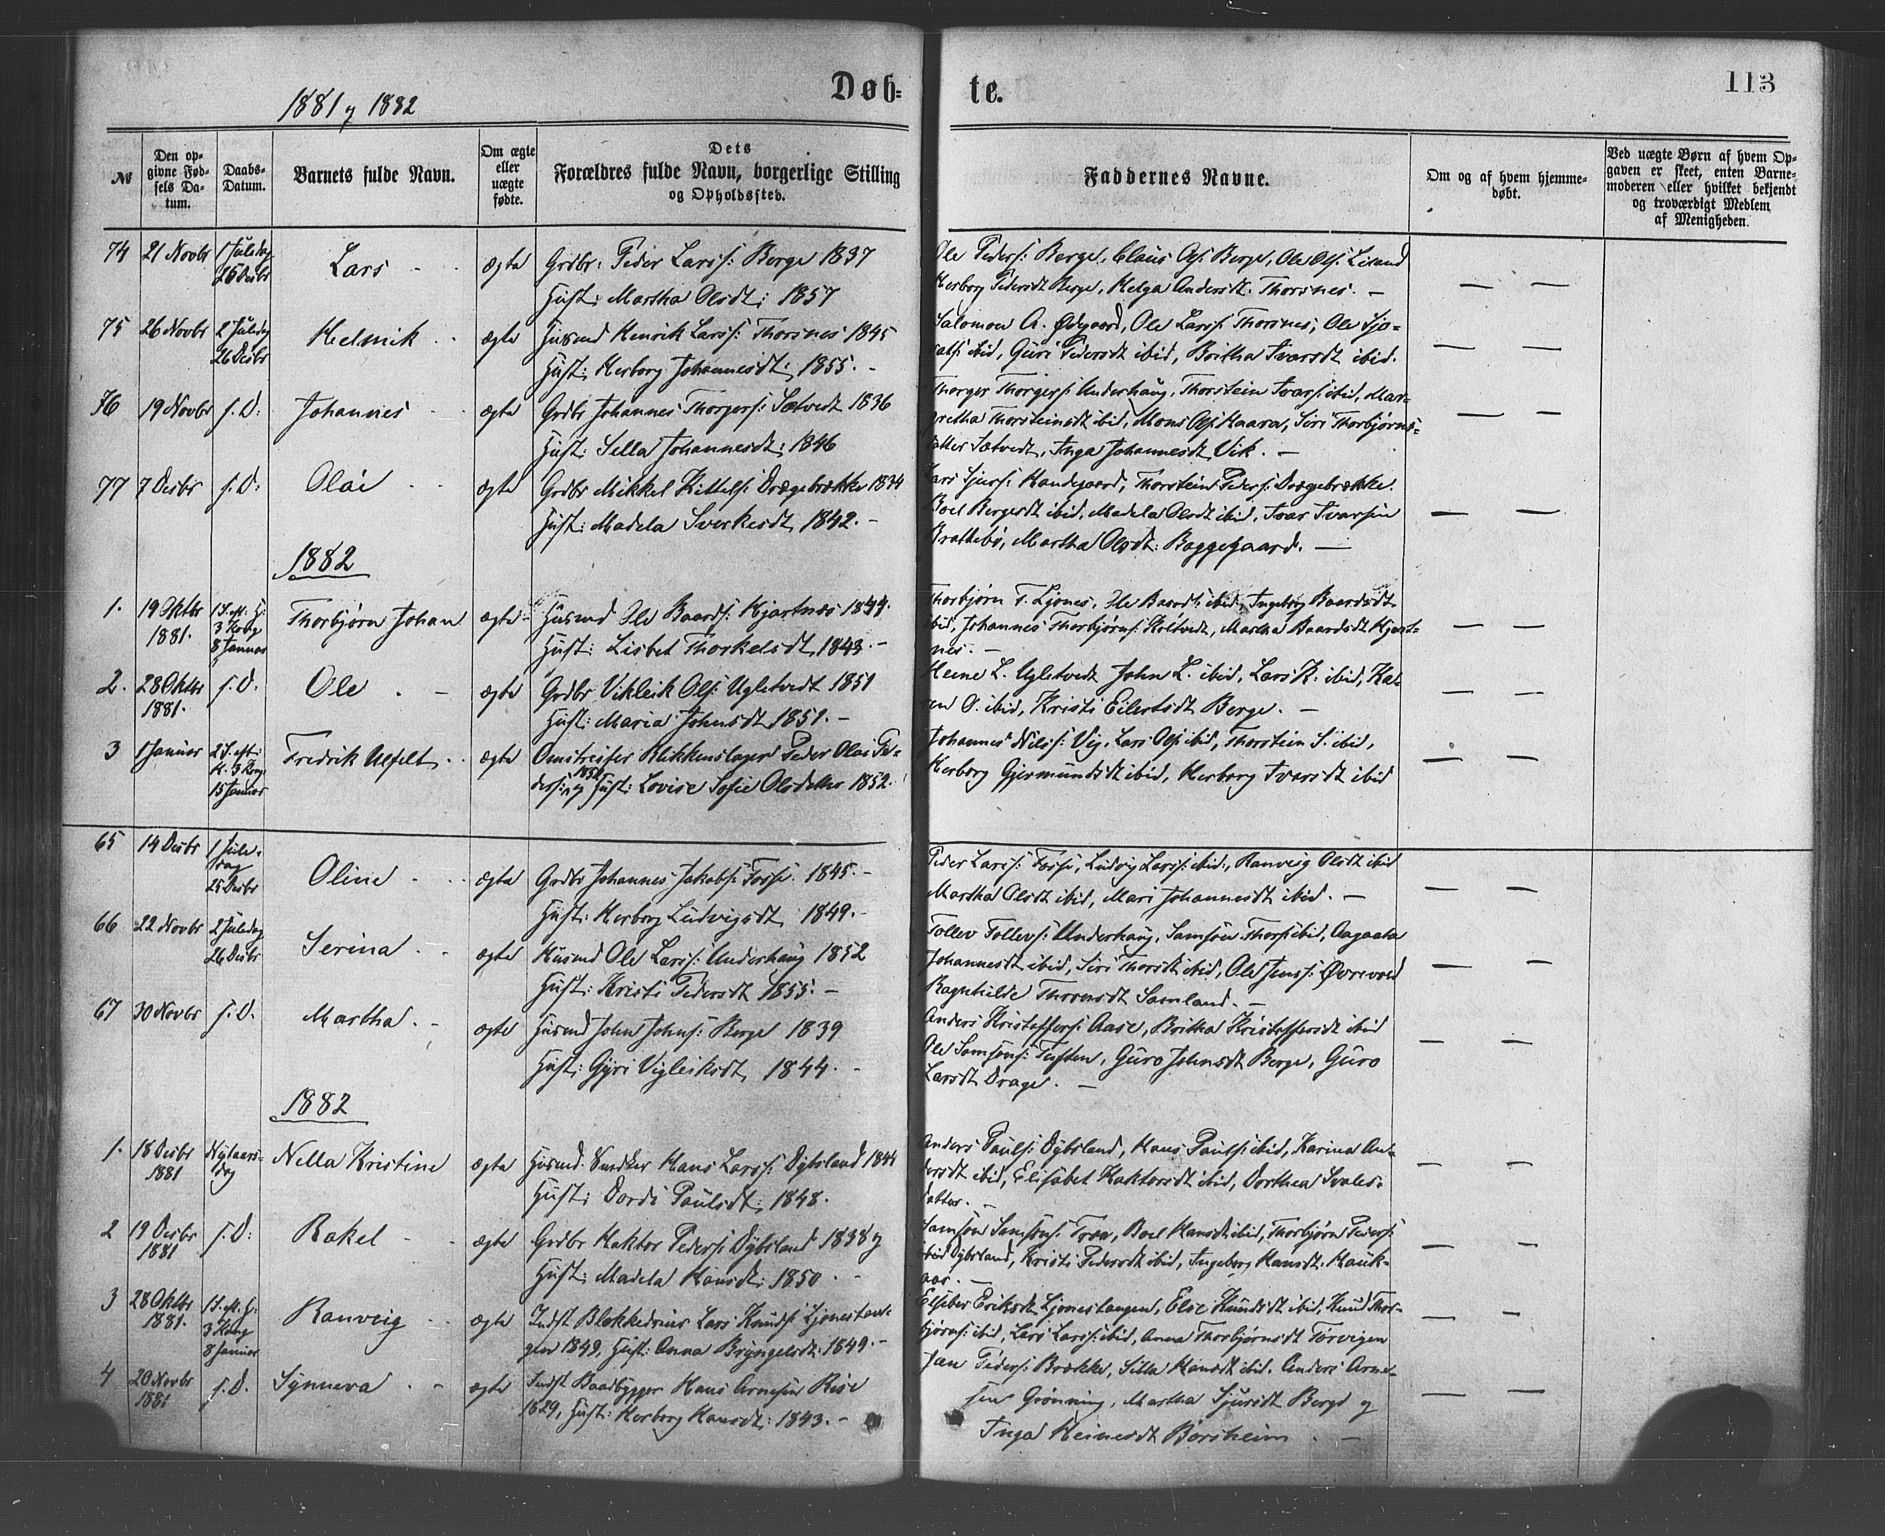 Døb=
te.
113
1881 og 1882
№
Den op-
givne Fød-
sels Da-
tum.
Daabs-
Datum.
Barnets fulde Navn.
Om ægte
eller
uægte
fødte.
Dets
Forældres fulde Navn, borgerlige Stilling
og Opholdssted.
Faddernes Navne.
Om og af hvem hjemme-
døbt.
Ved uægte Børn af hvem Op-
gaven er skeet, enten Barne-
moderen eller hvilket bekjendt
og troværdigt Medlem
af Menigheden.
74 21 Novbr 1 Juledag 26 Desbr Lars ægte Grdbr: Peder Larss: Berge 1837
Hust: Martha Olsdt: 1857
Ole Peders: Berge, Claus Ols: Berge, Ole Ols:
Herborg Pedersdt Berge, Helga Andersdt. Thorsnes. —
75 26 Novbr 2 Juledag 26 Desbr Helmik ægte Husmd Henrik Larss: Thorsnes 1845
Hust: Herborg Johannesdt: 1855. —
Salomon A. Ødegaard, Ole Larss: Thorsnes, Ole Sjo-
ibid, Guri Pedersdt ibid, Britha Ivarsdt ibid.
76 19 Novbr s. D: Johannes ægte Grdbr Johannes Thorgerss: Sætvedt 1836
Hust: Sella Johannesdt: 1846
Thorger Thorgers: Underhaug, Thorstein Ivars: ibid, Mar-
gretha Thorsteinsdt ibid, Mons Ols: Kaara, Siri Thorbjørns-
datter Sætvedt, Inga Johannesdt Vik. —
77 7 Desbr s. D: Olai ægte Grdbr Mikkel Kittels: Drægebrække 1834
Hust: Madela Sverkesdt, 1842. —
Lars Sjurs: Handegaard, Thorstein Peders: Drægebrække.
Boel Bergesdt ibid, Madela Olsdt ibid, Ivar Ivarsen
Brattebø, Martha Olsdt: Baggegaard. —
1882
1. 19 Oktbr 1881. 1 S. M. H: 3 Kong 8 Januar Thorbjørn Johan ægte Husmd Ole Baards: Kjartnæs 1844.
Hust: Lisbet Thorkelsdt, 1843. —
Thorbjørn T. Ljones, Ole Baards: ibid, Ingeborg Baardsdt
ibid, Johannes Thorbjørns: Martha Baardsdt Kjart-
nes. —
2. 28 Oktbr 1881. s. D. Ole ægte Grdbr Vikleik Ols: Ugletvedt 1851
Hust: Maria Johnsdt 1851. —
Heine L. Ugletvedt John L. ibid, Lars K. ibid, Ka-
ren O. ibid, Kristi Eilertsdt Berge. —
3 1 Januar 2 S. eft: H. 3 Kong 15 Januar Fredrik Ulfelt ægte Omstreifer Blikkenslager Peder Olai Pe-
derss: 1852 og Hust: Lovise Sofie Olsdatter 1852.
Johannes Nils: Vig, Lars Ols: ibid, Thorstein S. ibid,
Herborg Gjermundsdt ibid, Herborg Ivarsdt ibid
65 14 Desbr 1 Jule-dag 25 Desbr Oline ægte Grdbr Johannes Jakobs: Fosse 1845. —
Hust: Herborg Ludvigsdt, 1849. —
Peder Larss: Fosse, Ludvig Larss: ibid:, Ranveig Olsdt ibid
Martha Olsdt ibid, Mari Johannesdt ibid. —
66 22 Novbr 2 Juledag 26 Desbr Serina ægte Husmd Ole Larss: Underhaug 1852
Hust: Kristi Pedersdt 1855. —
Tollev Tollevs: Underhaug, Samson Thors: ibid, Aagaata
Johannesdt ibid, Siri Thorsdt ibid, Ole Jens: Øvrevold
Ragnhilde Samland. —
67 30 Novbr s. D. Martha ægte Husmd John Johns: Berge 1839
Hust: Gyri Vigleiksdt, 1844. —
Anders Kristoffers: Aase, Britha Kristoffersdt ibid
Ole Samsons: Tuften, Guro Johnsdt Berge, Guro
Larsdt Drage. —
1882
1. 18 Desbr 1881 Nytaars-dag Nella Kristine ægte Husmd. Snedker Hans Larss: Dybsland 1844
Hust: Dordi Paulsdt: 1848.
Anders Pauls: Dybsland, Hans Pauls: ibid, Karina An-
dersdt ibid, Elisabet Haktorsdt ibid, Dorthea
datter. —
2 19 Desbr 1881 s. D: Rakel ægte Grdbr Haktor Peders: Dybsland 1838 og
Hust: Madela Hansdt: 1850.
Samson Samsons: Træa, Boel Hansdt ibid, Thorbjørn Peders:
Dybsland, Kristi Pedersdt ibid, Ingeborg Hansdt: Hauk-
aas. —
3 28 Oktbr 1881. 1 S. M. H: 3 Kong 8 Januar Ranveig ægte Indst Blokkedreier Lars Knuds: Ljonestan-
gen 1849, Hust: Anna Bryngelsdt: 1849. —
Eriksdt Ljonestangen, Else Knudsdt ibid, Knud Thor-
bjørns: ibid, Lars Larss: ibid, Anna Thorbjørnsdt Torvigen
4 20 Novbr 1881 s. D. Synneva ægte Indst Baadbygger Hans Arnesen Risø
1829, Hust: Herborg Hansdt: 1843. —
Jan Peders: Brække, Silla Hansdt ibid. Anders Arne-
sen Grønning, Martha Sjursdt Berge og
Inga Heinesdt Børsheim. —